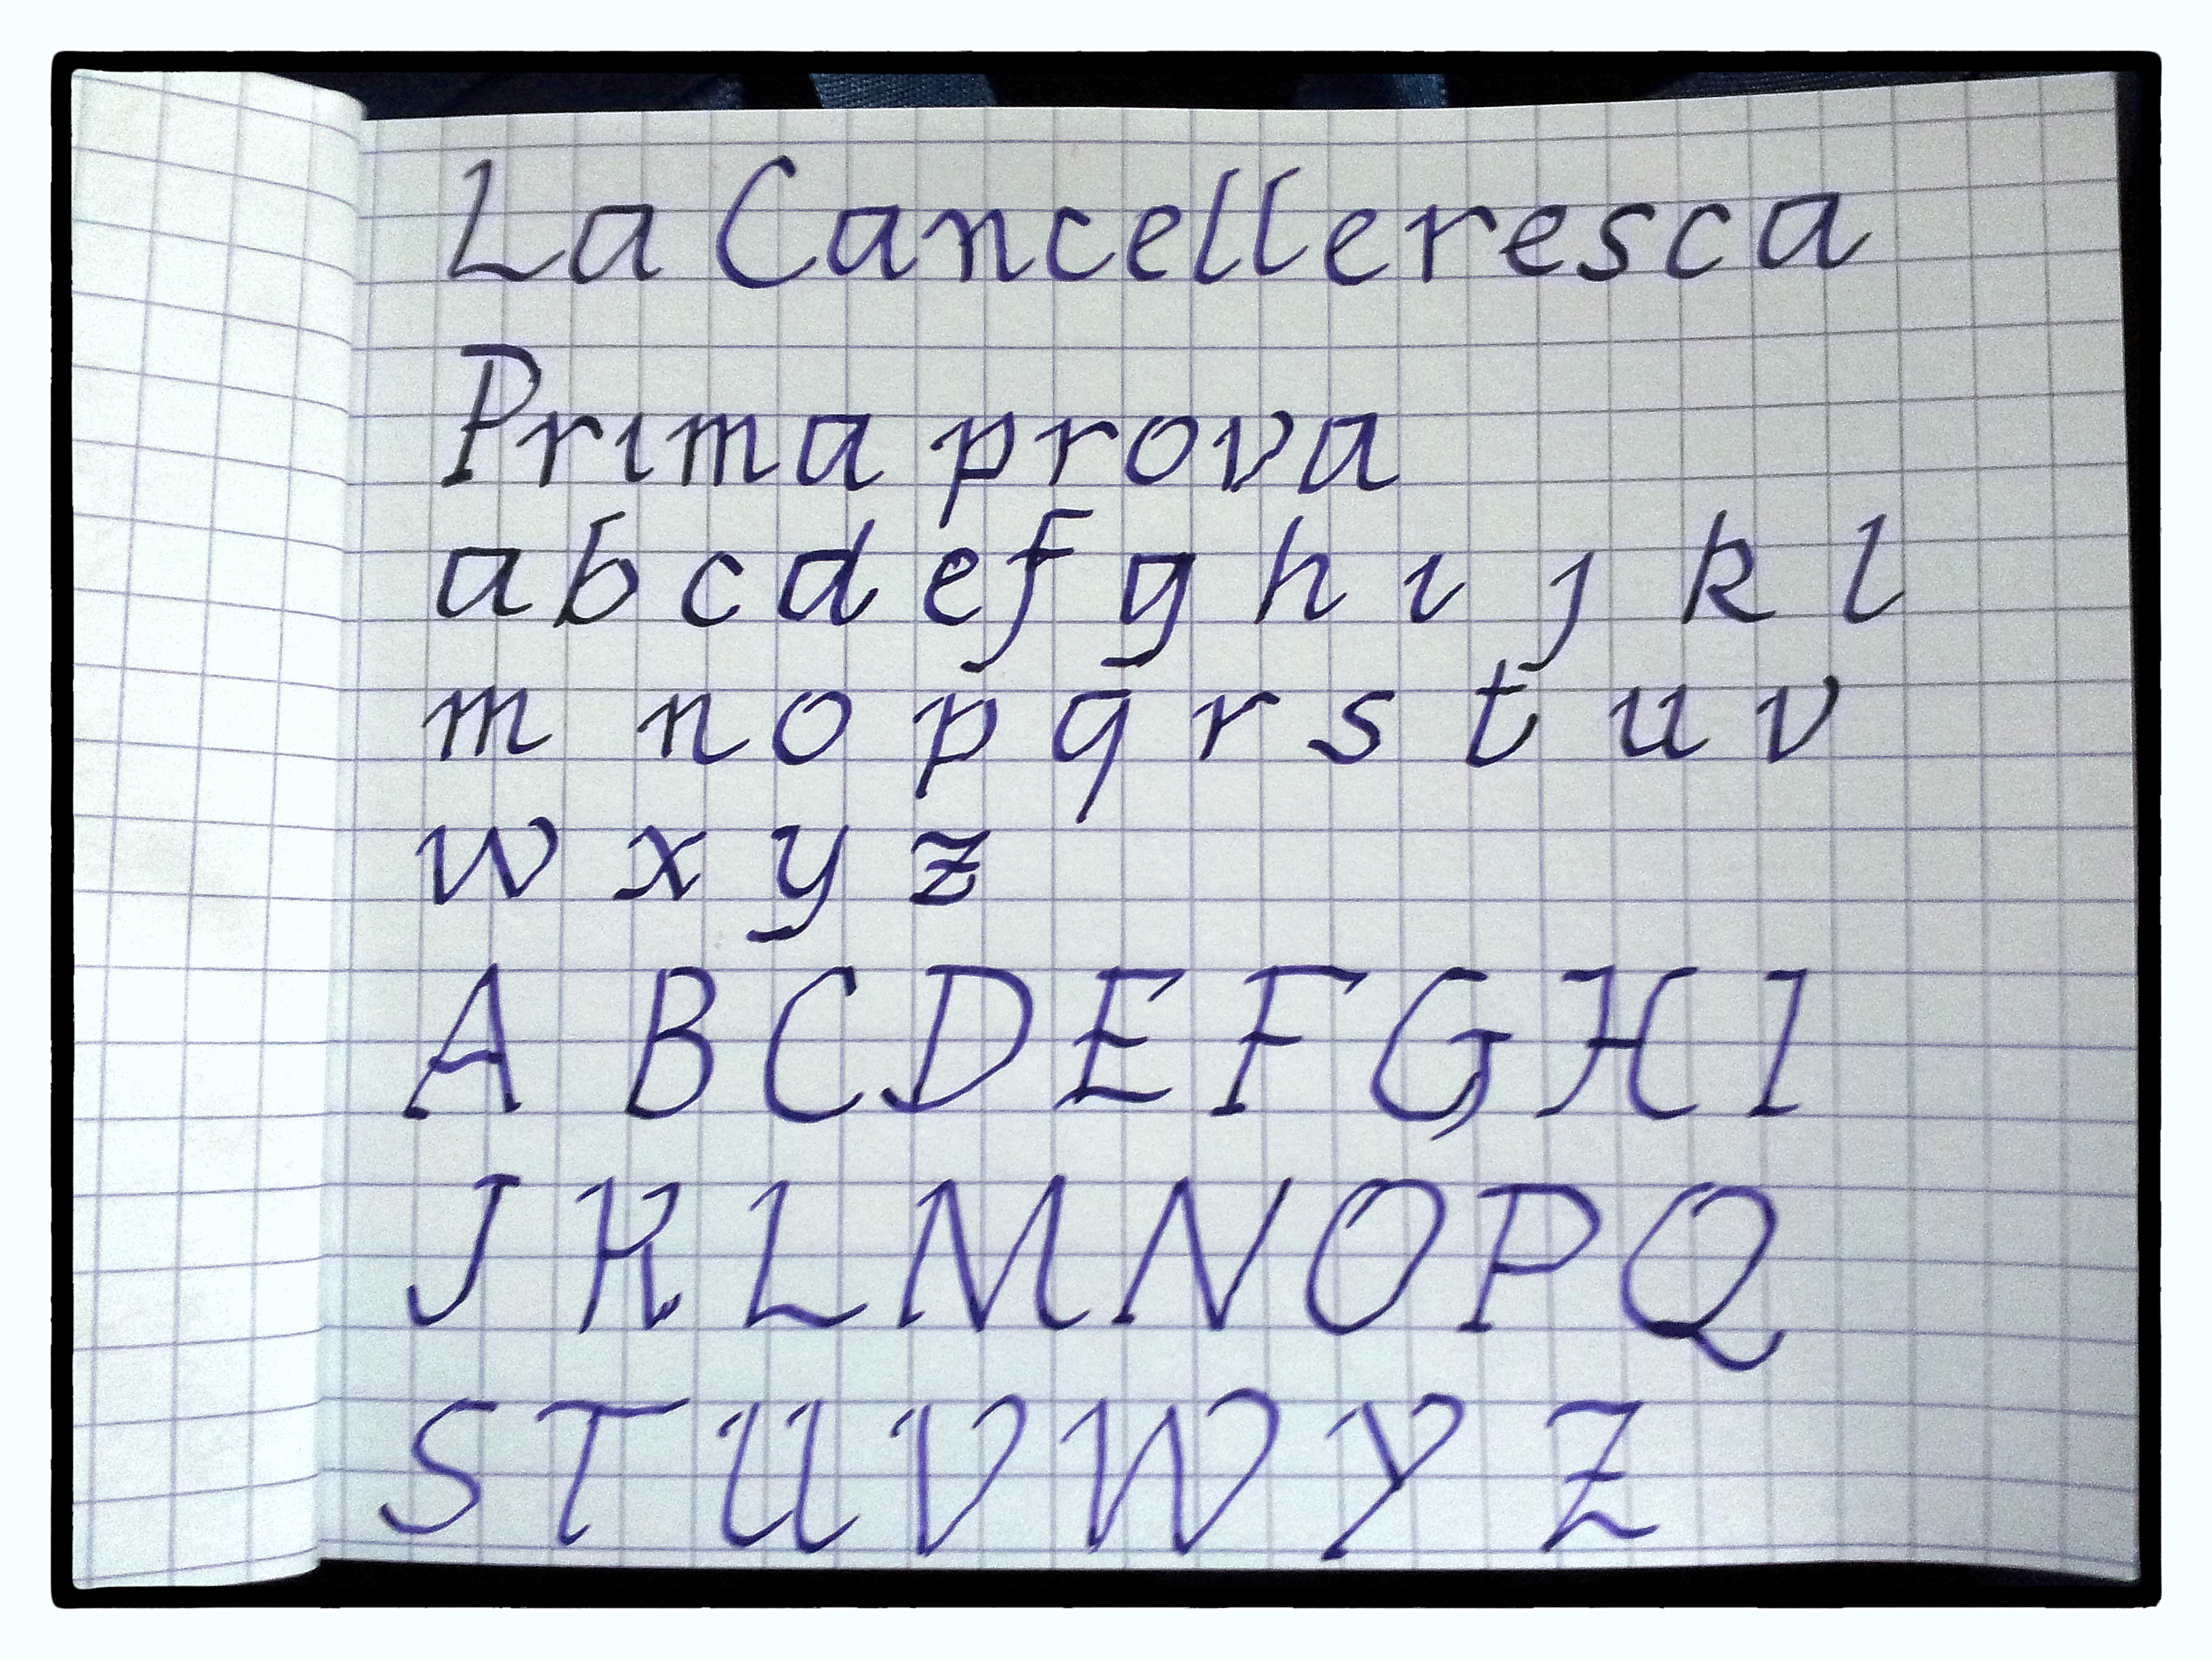 La Cancelleresca
Prima prova
a b c d e f g h i j k l
m n o p q r s t u v
w x y z
A B C D E F G H I
J K L M N O P Q
S T U V W Y Z